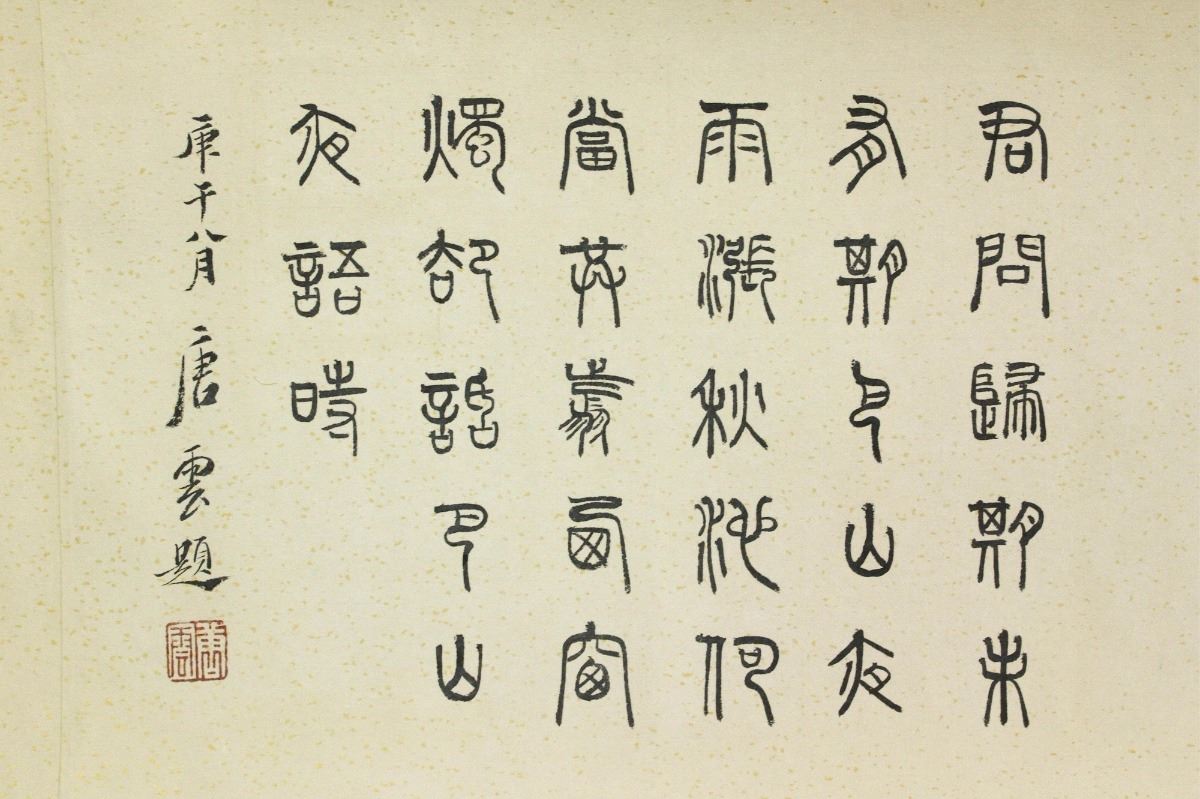 君問歸期未
有期巴山夜
雨漲秋池何
當共翦西窗
燭卻話巴山
夜語時
庚午八月 唐雲題
唐雲